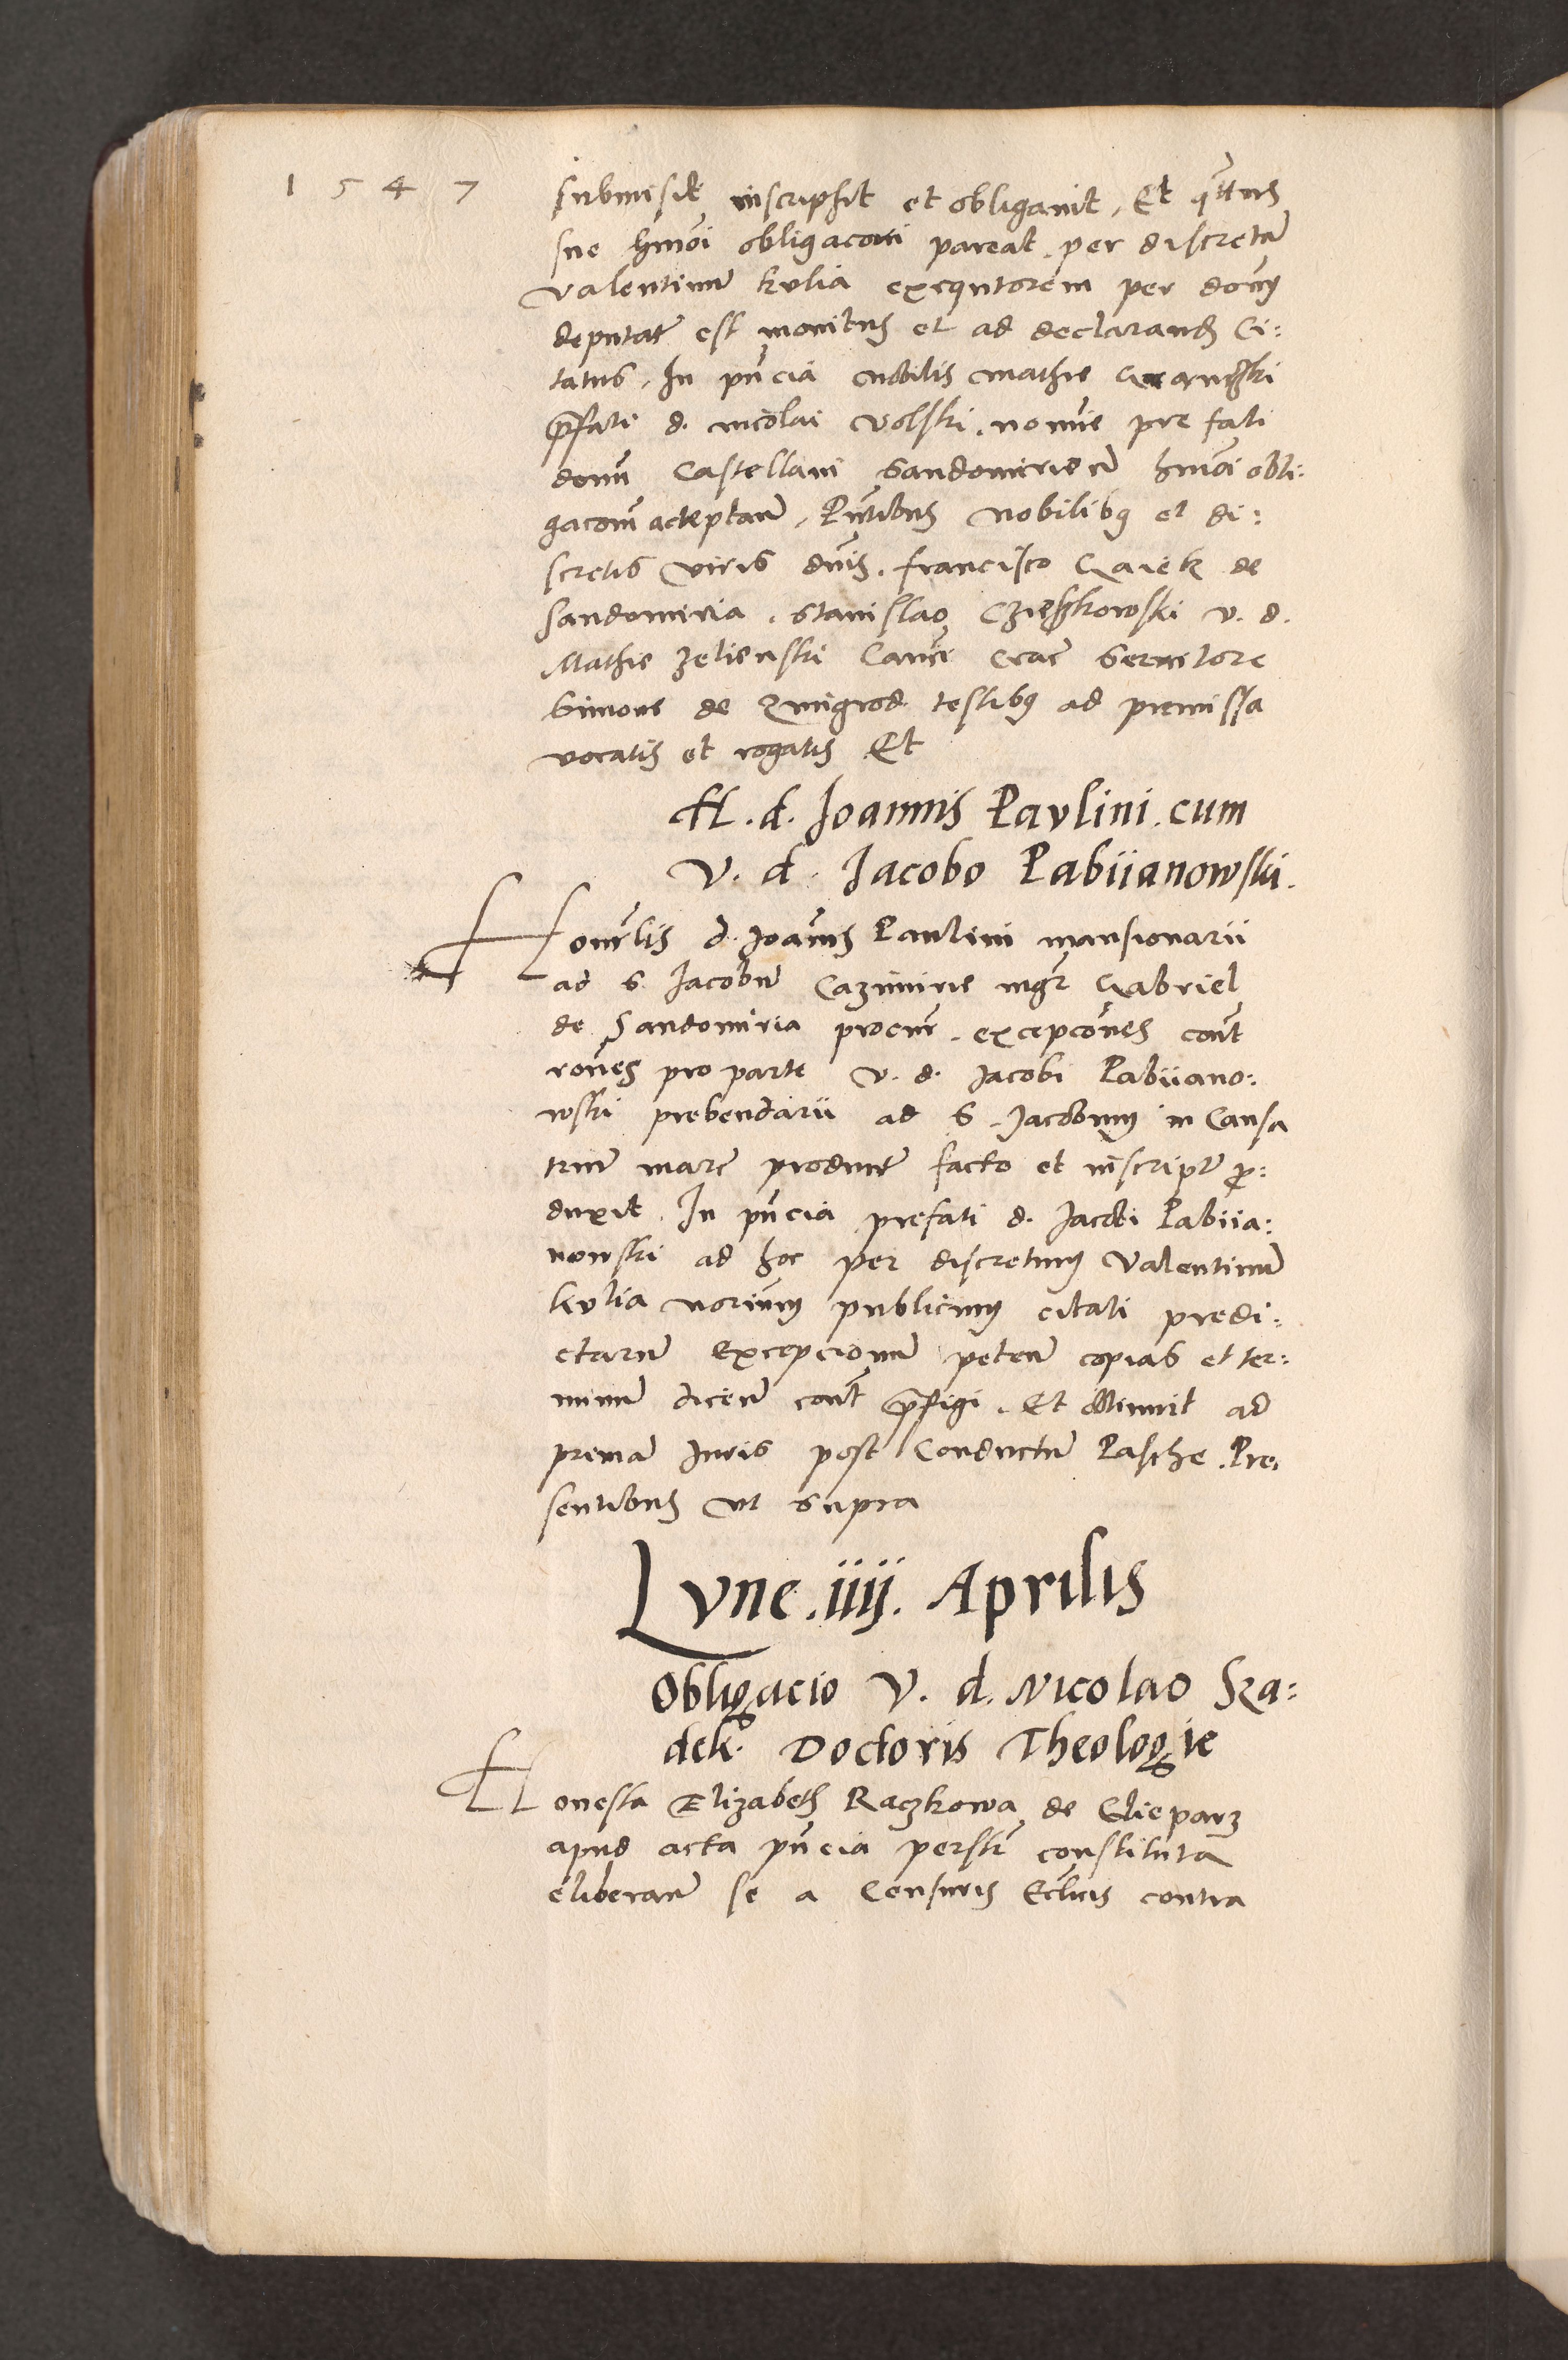 1547
submisit inscripsit et obligavit, Et qttus
sue hmoi obligaconi pareat, per discretu
Valentinu Kulia exequtorem per donu
deputat est monitus et ad declarand Ci:
tatus, In pncia nobilis Mathie
pfati d. Nicolai Volski, nomie pre fati
domi Castellani Sandomirien hmoi obli:
gacom acceptan, Pntibus Nobilibus et di:
scretis viris dnis, Francisco Gaiek de
Sandomiria, Stanislao Czieszkowski v. d.
Mathie Zelienski Canci Crac Servitore
Simone de Zmigrod testibus ad premissa
vocatis et rogatis Et
H. d. Joannis Pavlini. cum
V. d. Jacobo Pabiianowski.
Honorlis d. Joanis Paulini mansionarii
ad S. Jacobu Cazimirie mgr Gabriel
de Sandomiria procur. excepcones cont
rones pro parte v. d. Jacobi Pabiiano:
wski prebendarii ad S. Jacobum in Causa
trium marc product facto et inscript p:
duxit, In pncia prefati d. Jacobi Pabiia:
nowski ad hoc per discretum Valentinu
Kulia norium publicum citati predi:
ctaru Excepcionum peten copias et ter:
minu dicen cont pfigi. Et obtinuit ad
prima Juris post Conductu Pasche. Pre,
sentibus Ut supra
Lvne. iiij. Aprilis
Obligacio V. d. Nicolao Sza:
dek Doctoris Theologie
Honesta Elizabeth Raczkowa de Clieparz
apud acta pncia perstr constituta
eliberan se a Censuris Eclicis contra